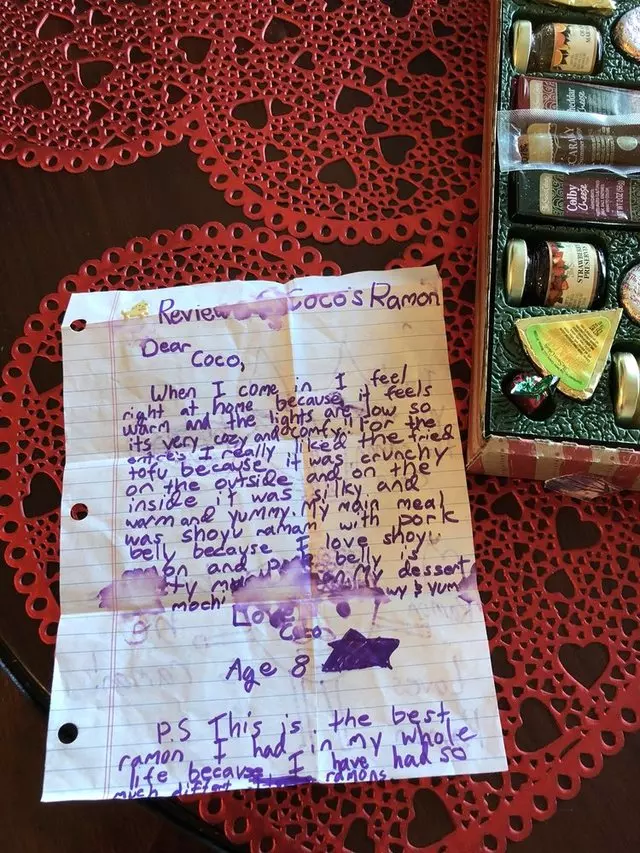 Review Coco's Ramon
Dear
Coco,
When I come in I feel
right at home because it feels
warm and the lights are low so
its very cozy and comfy!! For the
entres I really liked the fried
tofu because it was crunchy
on the outside and on the
inside it was silky and
warm and yummy. My main meal
was shoyu ramam with pork
belly because I love shoyu
and belly is
my dessert
mochi
Love
Coco
Age 8
P.S This is the best
ramon I had in my whole
life because I have had so
much ramons
Colby
Cheese
STRAWBERRY